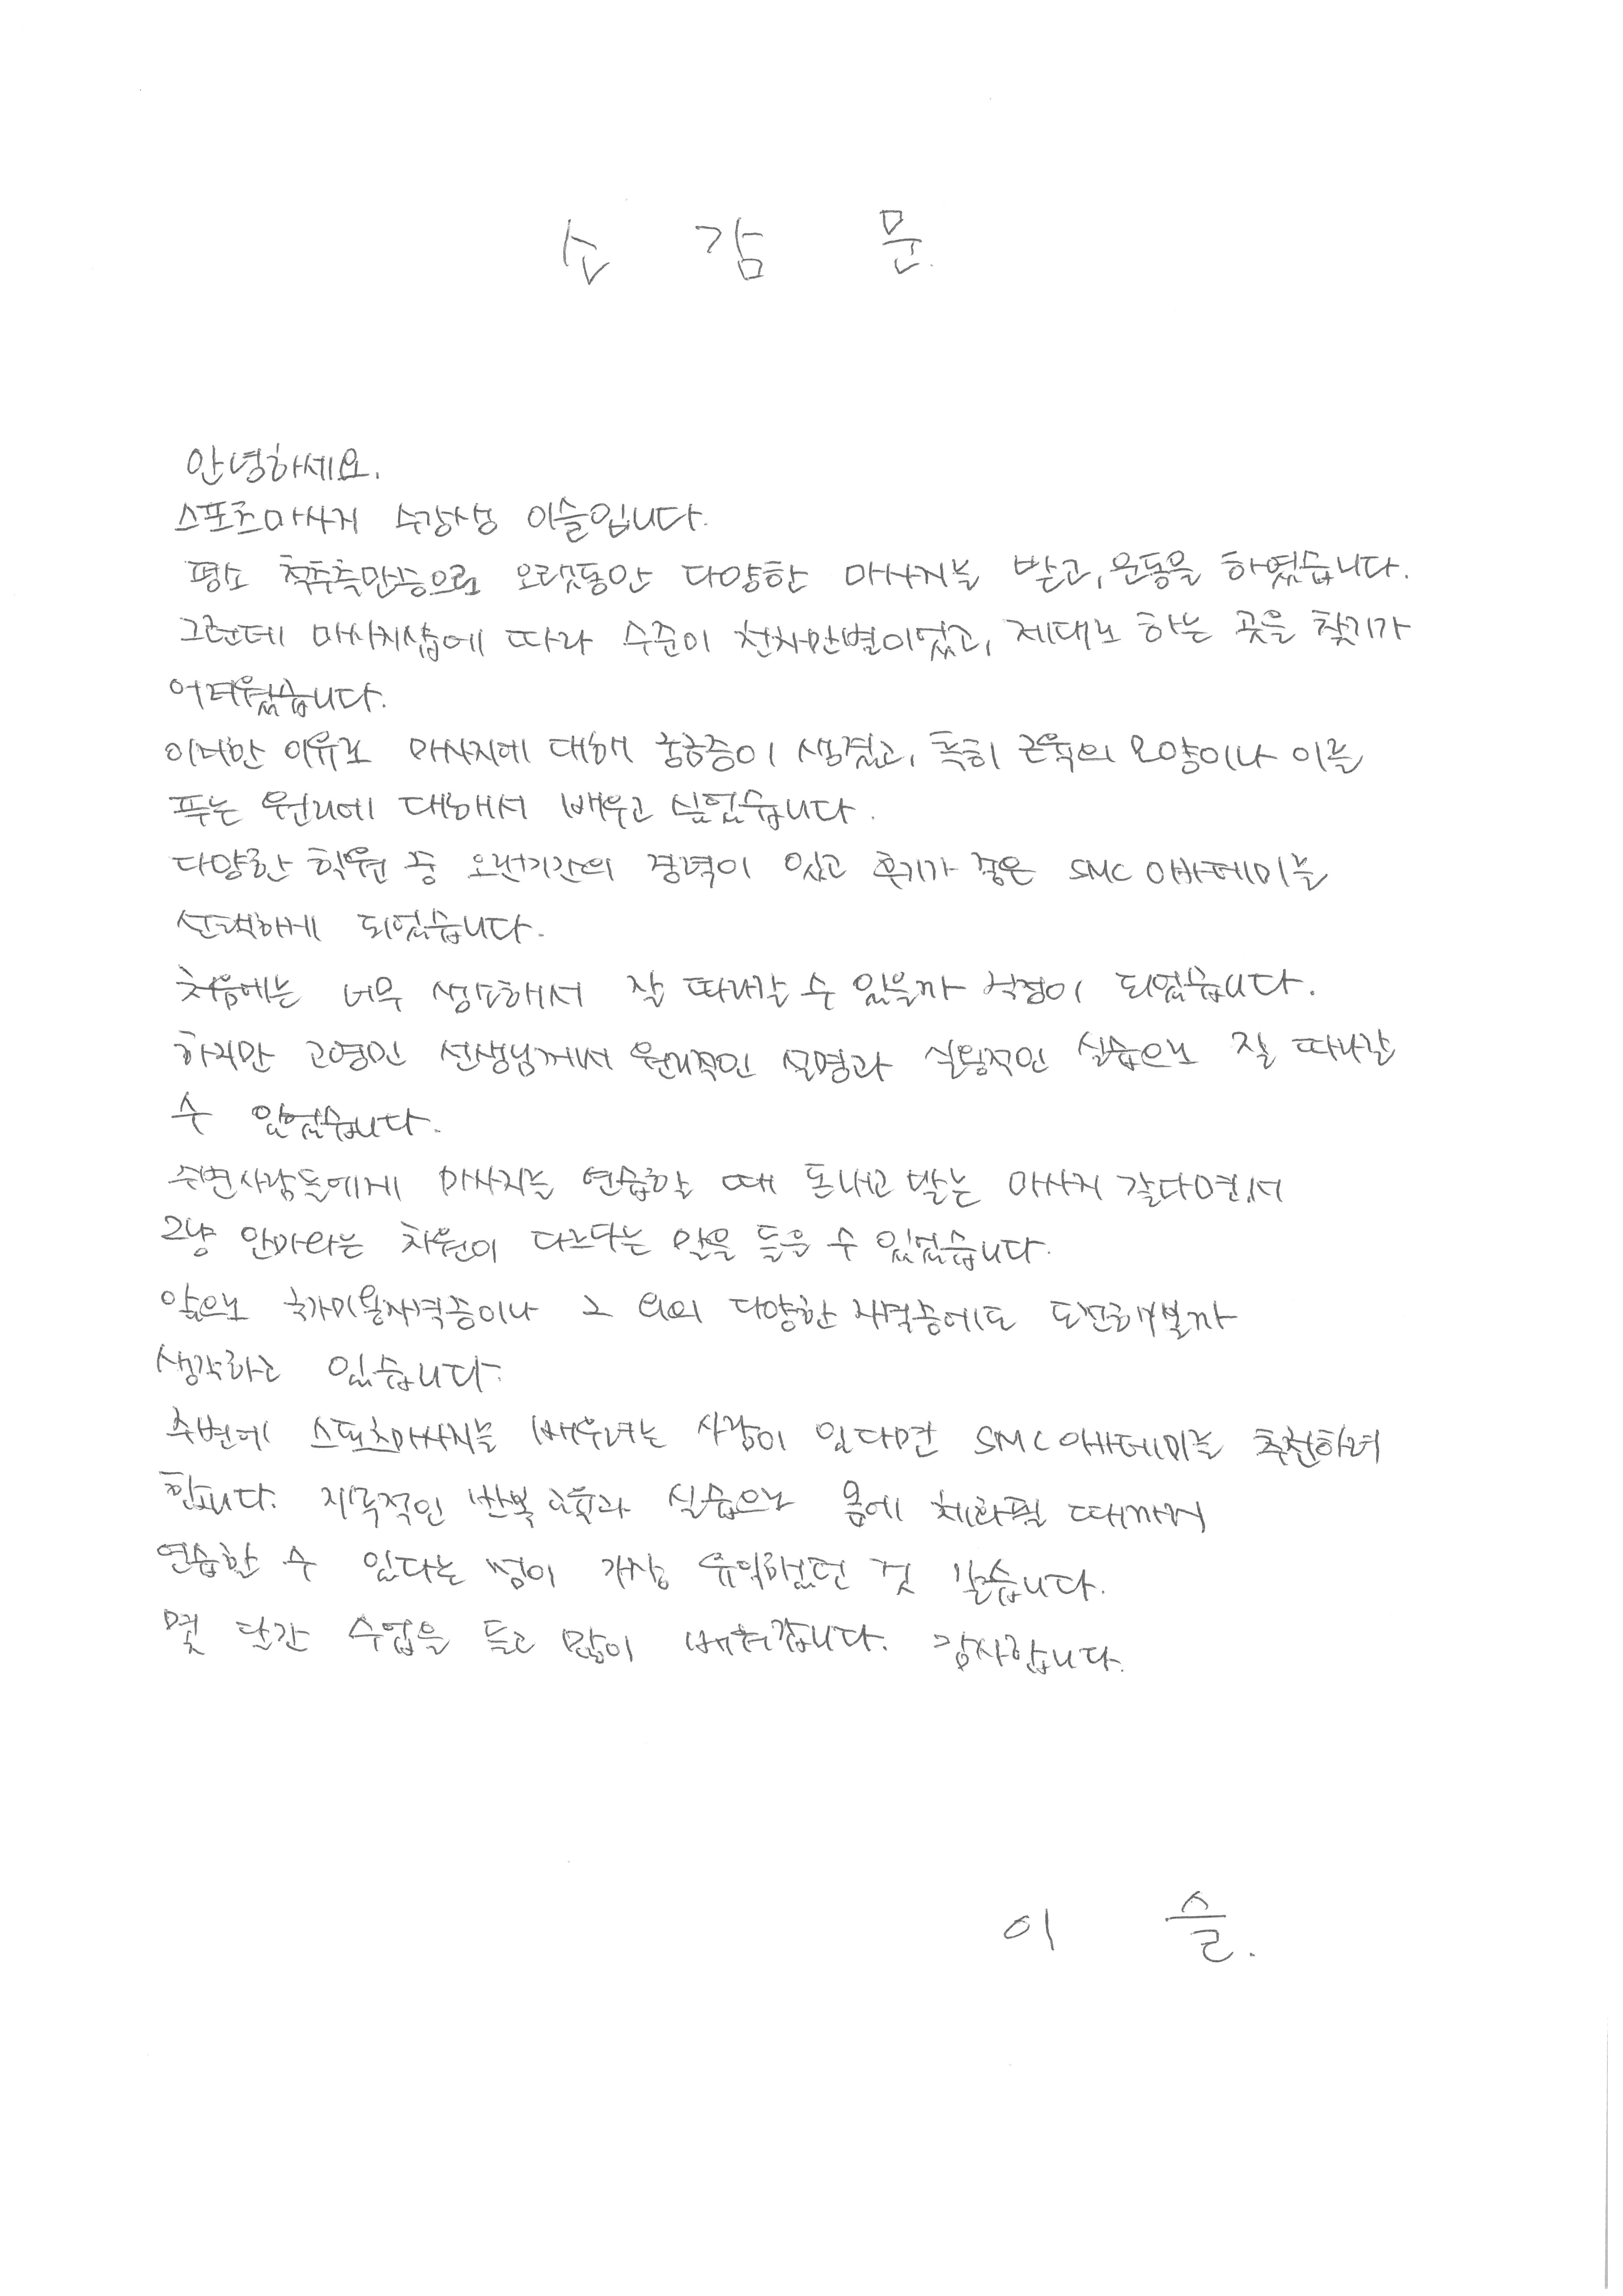 소 감 문.
안녕하세요.
스포츠마사지 수강생 이슬입니다.
평소 척추측만증으로 오랫동안 다양한 마사지를 받고, 운동을 하였습니다.
그런데 마사지샵에 따라 수준이 천차만별이었고, 제대로 하는 곳을 찾기가
어려웠습니다.
이러한 이유로 마사지에 대해 궁금증이 생겼고, 특히 근육의 모양이나 이를
푸는 원리에 대해서 배우고 싶었습니다.
다양한 학원 중 오랜기간의 경력이 있고 후기가 좋은 SMC아카데미를
선택하게 되었습니다.
처음에는 너무 생소해서 잘 따라갈 수 있을까 걱정이 되었습니다.
하지만 고영민 선생님께서 원리적인 설명과 실용적인 실습으로 잘 따라갈
수 있었습니다.
주변사람들에게 마사지를 연습할 때 돈내고 받는 마사지 같다면서
그냥 안마와는 차원이 다르다는 말을 들을 수 있었습니다.
앞으로 국가미용자격증이나 그 외의 다양한 자격증에도 도전해볼까
생각하고 있습니다.
주변에 스포츠마사지를 배우려는 사람이 있다면 SMC아카데미를 추천하려
합니다. 지속적인 반복 교육과 실습으로 몸에 체화될 때까지
연습할 수 있다는 점이 가장 유익하였던 것 같습니다.
몇 달간 수업을 듣고 많이 배워갑니다. 감사합니다.
이 슬.